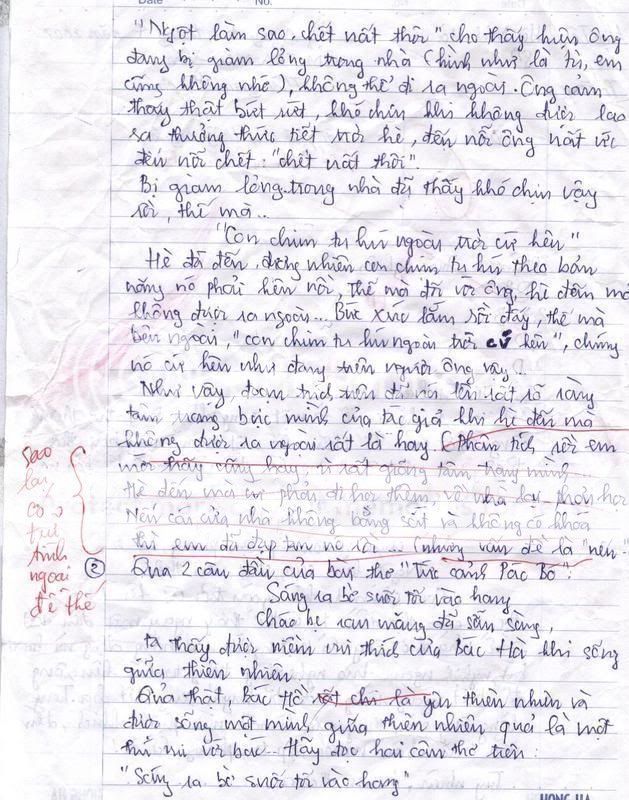 "Ngột làm sao, chết uất thôi" cho thấy hiện ông
đang bị giam lỏng trong nhà (hình như là tù, em
cũng không nhớ), không thể đi ra ngoài. Ông cảm
thấy thật bứt rứt, khó chịu khi không được lao
ra thưởng thức tiết trời hè, đến nỗi ông uất ức
đến nỗi chết: "chết uất thôi".
Bị giam lỏng trong nhà đã thấy khó chịu vậy
rồi, thế mà..
"Con chim tu hú ngoài trời cứ kêu"
Hè đã đến, đương nhiên con chim tu hú theo bản
năng nó phải kêu rồi, thế mà đối với ông, hè đến mà
không được ra ngoài... Bức xúc lắm rồi đấy, thế mà
bên ngoài, "con chim tu hú ngoài trời cứ kêu", chúng
nó cứ kêu như đang trêu người ông vậy..
Như vậy, đoạn trích trên đã nói lên rất rõ ràng
tâm trạng bức mình của tác giả khi hè đến mà
không được ra ngoài rất là hay (Phân tích rồi em
mới thấy cũng hay, vì rất giống tâm trạng mình...
Hè đến mà cứ phải đi học thêm, về nhà lại phải học
Nếu cái cửa nhà không bằng sắt và không có khóa
thì em đã đạp tan nó rồi... (nhưng vấn đề là "nếu"...
Sao
lại
có
trữ
tình
ngoài
đề thế
② Qua 2 câu đầu của bài thơ "Tức cảnh Pác Bó":
Sáng ra bờ suối tối vào hang
Cháo bẹ rau măng đã sẵn sàng,
ta thấy được niềm vui thích của Bác Hồ khi sống
giữa thiên nhiên.
Quả thật, bác Hồ rất chi là yêu thiên nhiên và
được sống một mình giữa thiên nhiên quả là một
thú vui với bác... Hãy đọc hai câu thơ trên:
"Sáng ra bờ suối tối vào hang"
HONG HA